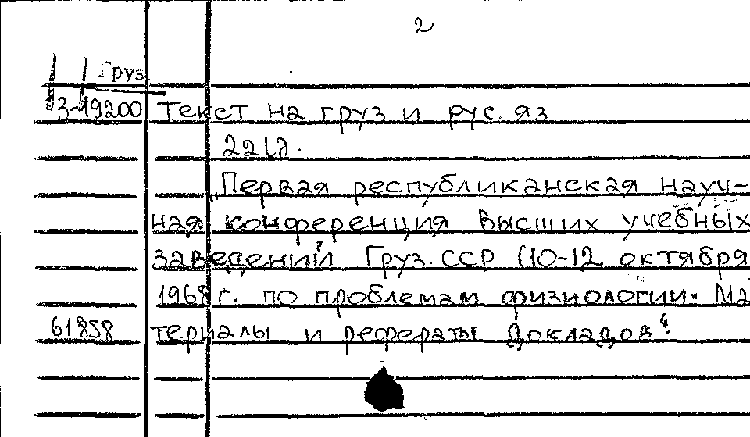 2
Груз
3-19200 Текст на груз и рус. яз
221л.
„Первая республиканская науч-
ная конференция высших учебных
заведений Груз. ССР (10-12 октября
1968г. по проблемам физиологии. Ма
61858 териалы и рефераты докладов“.